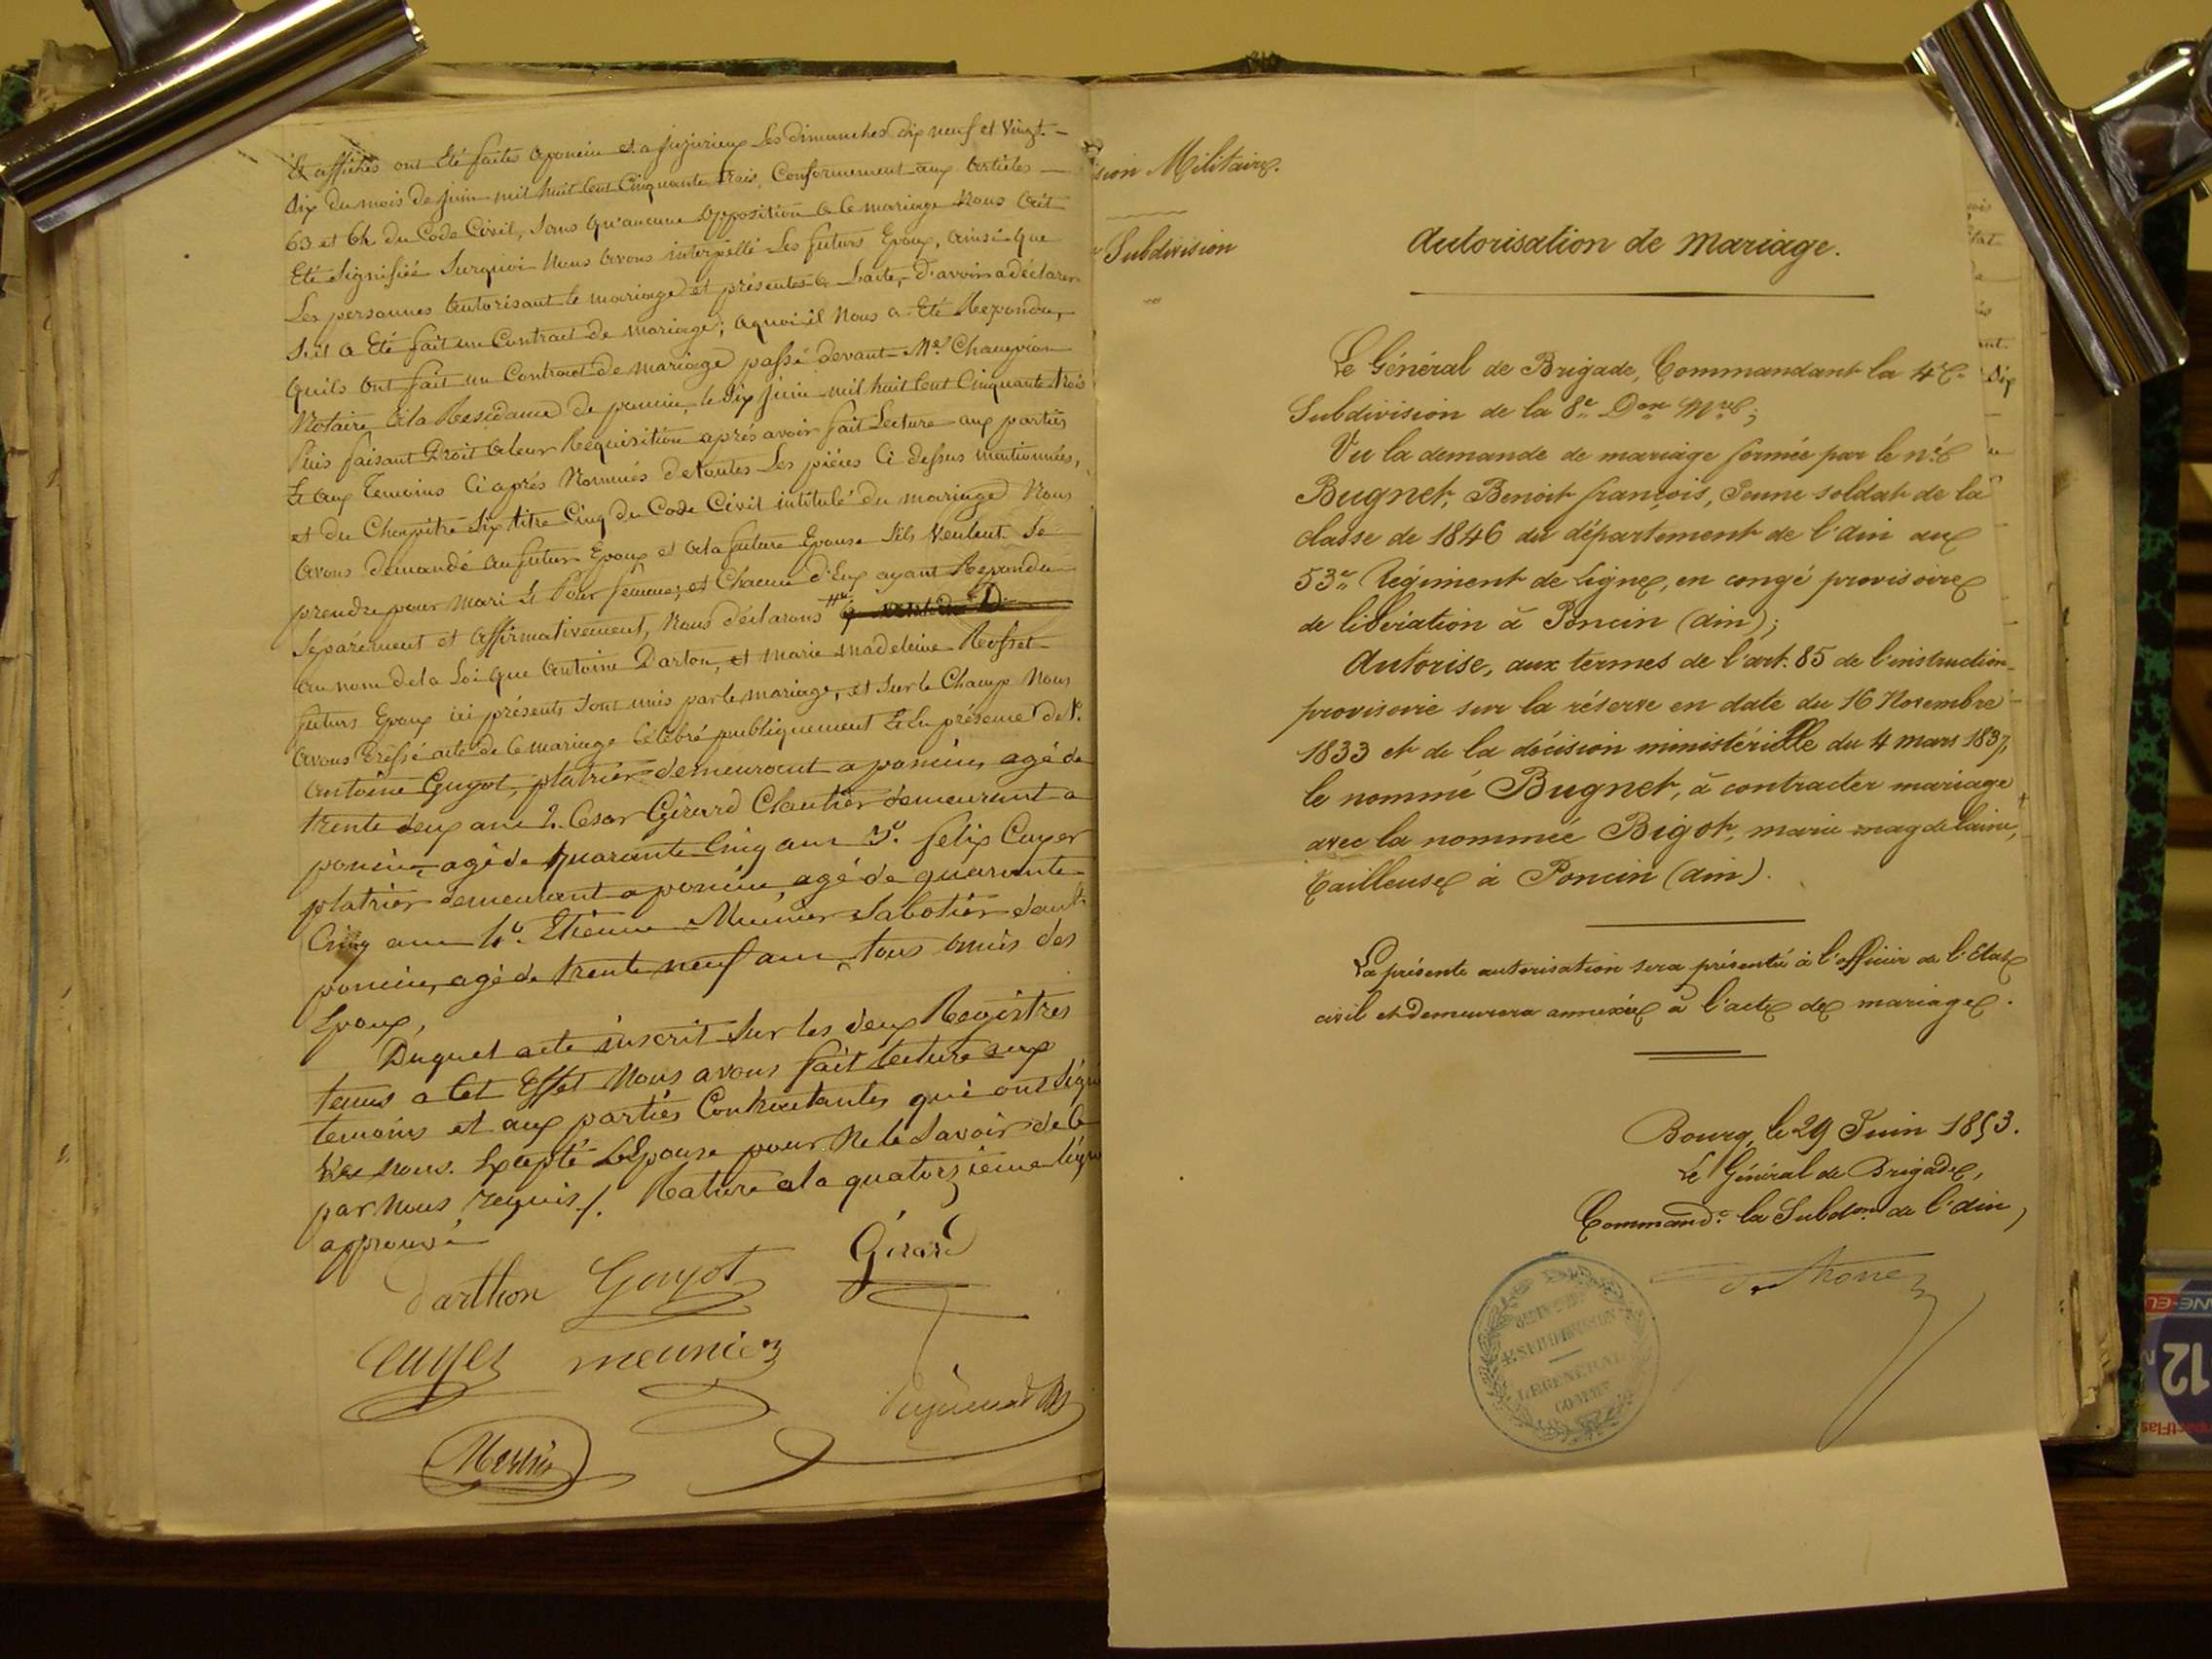 Et affiches ont été faites a poncin et a jujurieux Les dimanches dix neuf et Vingt-
six du mois de juin mil huit Cent Cinquante trois, Conformement aux Articles
63 et 64 du Code Civil, sans qu'aucune Opposition a Ce mariage Nous Ait
Eté Signifiée Surquoi Nous Avons interpellé Les futurs Epoux, ainsi que
Les personnes Autorisant le mariage et présentes a Lacte, d'avoir a déclarer
S'il a Eté fait un Contract de mariage; aquoi il Nous a Eté Repondu,
quils Ont fait un Contract de mariage passé devant Me
Notaire à la Residance de poncin, le Six juin mil huit Cent Cinquante trois
Puis faisant Droit a leur Réquisition après avoir fait Lecture aux parties
Et aux Temoins Ci après Nommés de toutes Les pièces Ci dessus mentionnées,
et du Chapitre Six titre Cinq du Code Civil intitulé du mariage Nous
Avons demandé Au futur Epoux et a la future Epouse S'ils Veulent Se
prendre pour Mari Et Pour femme; et Chacun d'Eux ayant Repondu
Séparément et Affirmativement, Nous déclarons
au nom de la Loi que Antoine Darton, et marie madeleine Rosset
futurs Epoux ici présents Sont unis par le mariage, et Sur le Champ Nous
Avons Dressé acte de Ce mariage Célébré publiquement En présence de 1°.
Antoine Guyot, platrier demeurant a poncin, agé de
trente deux ans 2. Cesar Girard Cloutier demeurant a
poncin, agé de quarante Cinq ans 3°. felix Cuyer
platrier demeurant a poncin agé de quarante
Cinq ans 4°. Etienne Munier Sabotier
poncin, agé de trente neuf ans, tous amis des
Epoux,
Duquel acte inscrit Sur les deux Registres
tenus a Cet Effet Nous avons fait lecture aux
temoins et aux parties Contractantes qui ont Signé
nous. Exepté L'Epouse pour Ne le Savoir de Ce
par Nous requis ./. Rature a la quatorzieme ligne
approuvé
darthon Guyot Girard
Cuyer meunier
sion Militaire.
Subdivision
Autorisation de Mariage.
Le Général de Brigade, Commandant la 4e
Subdivision de la 8e Don Mre;
Vu la demande de mariage formée par le né
Bugnet, Benoit françois, Jeune soldat de la
classe de 1846 du département de l'Ain au
53e Régiment de Ligne, en congé provisoire
de libération à Poncin (Ain);
Autorise, aux termes de l'art. 85 de l'instruction
provisoire sur la réserve en date du 16 Novembre
1833 et de la décision ministérielle du 4 mars 1837,
le nommé Bugnet, à contracter mariage
avec la nommée Bigot, marie magdelaine,
Tailleuse à Poncin (Ain).
La présente autorisation sera présentée à l'officier de l'Etat
civil et demeurera annexée à l'acte de mariage.
Bourg, le 29 Juin 1853.
Le Général de Brigade,
Commandt la Subdon de l'Ain,
4e SUBDIVISION
LE GENERAL
COMMT
12